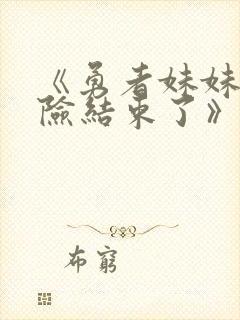 《勇者妹妹
險結束了》
布窮